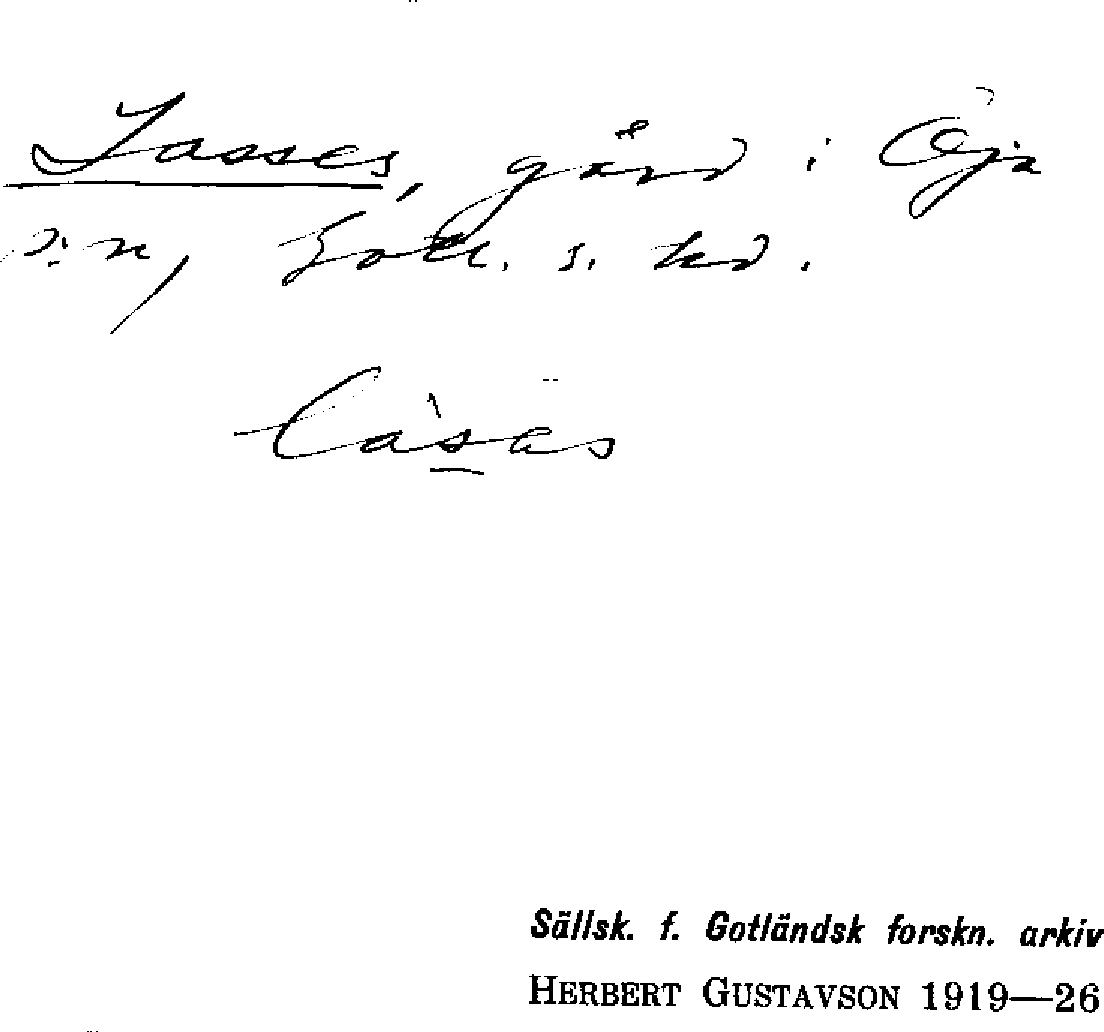 Lasses, gård i Öja
s:n, Gotl. s. hd.
làsäs
Sällsk. f. Gotländsk forskn. arkiv
HERBERT GUSTAVSON 1919—26